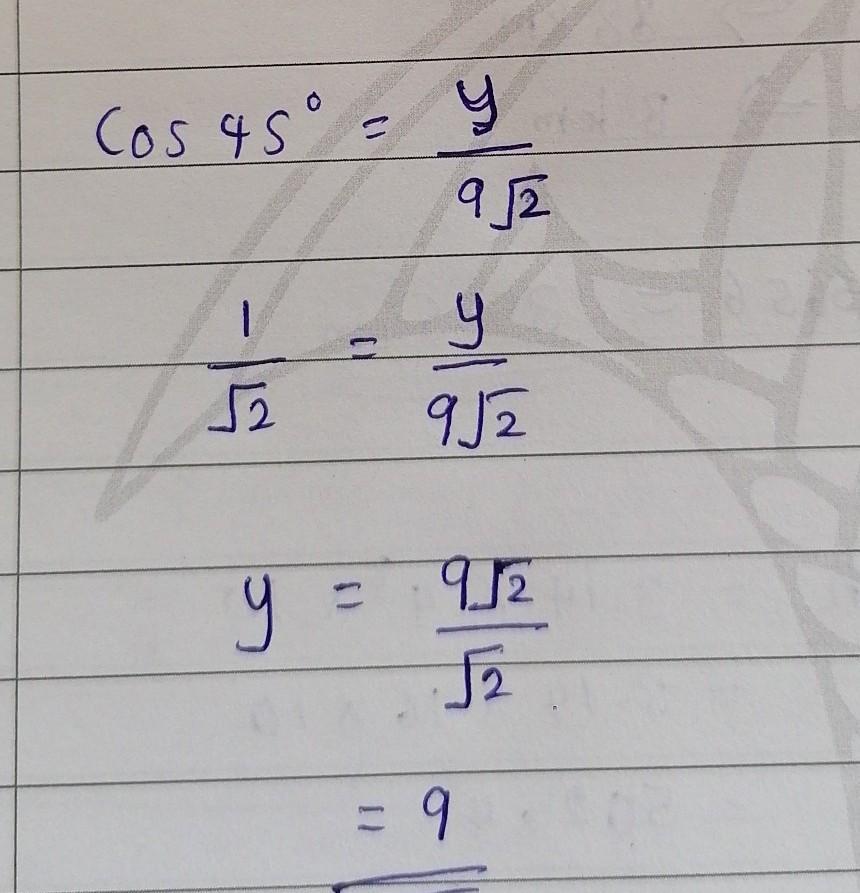 Cos 45° = y / 9√2
1 / √2 = y / 9√2
y = 9√2 / √2
= 9